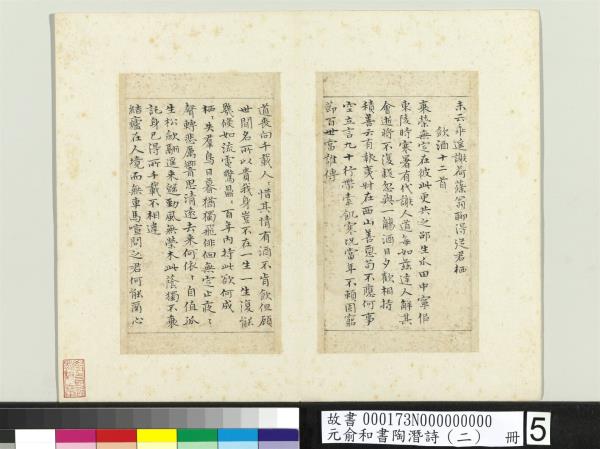 未云乖遥謝荷蓧翁聊得從君栖
飲酒十二首
衰榮無定在彼此更共之邵生瓜田中寧似
東陵時寒暑有代謝人道每如茲達人解其
會逝將不復疑忽與一觴酒日夕歡相持
積善云有報夷叔在西山善惡苟不應何事
空立言九十行帶索飢寒況當年不賴固窮
節百世當誰傳
道喪向千載人〻惜其情有酒不肯飲但顧
世間名所以貴我身豈不在一生一生復能
幾倏如流電驚鼎〻百年內持此欲何成
栖〻失羣鳥日暮猶獨飛徘徊無定止夜〻
聲轉悲厲響思清遠去來何依〻自值孤
生松斂翮遥來歸勁風無榮木此蔭獨不衰
託身已得所千載不相違
結廬在人境而無車馬喧問之君何能爾心
故書 000173N000000000
元俞和書陶潛詩(二) 冊 5